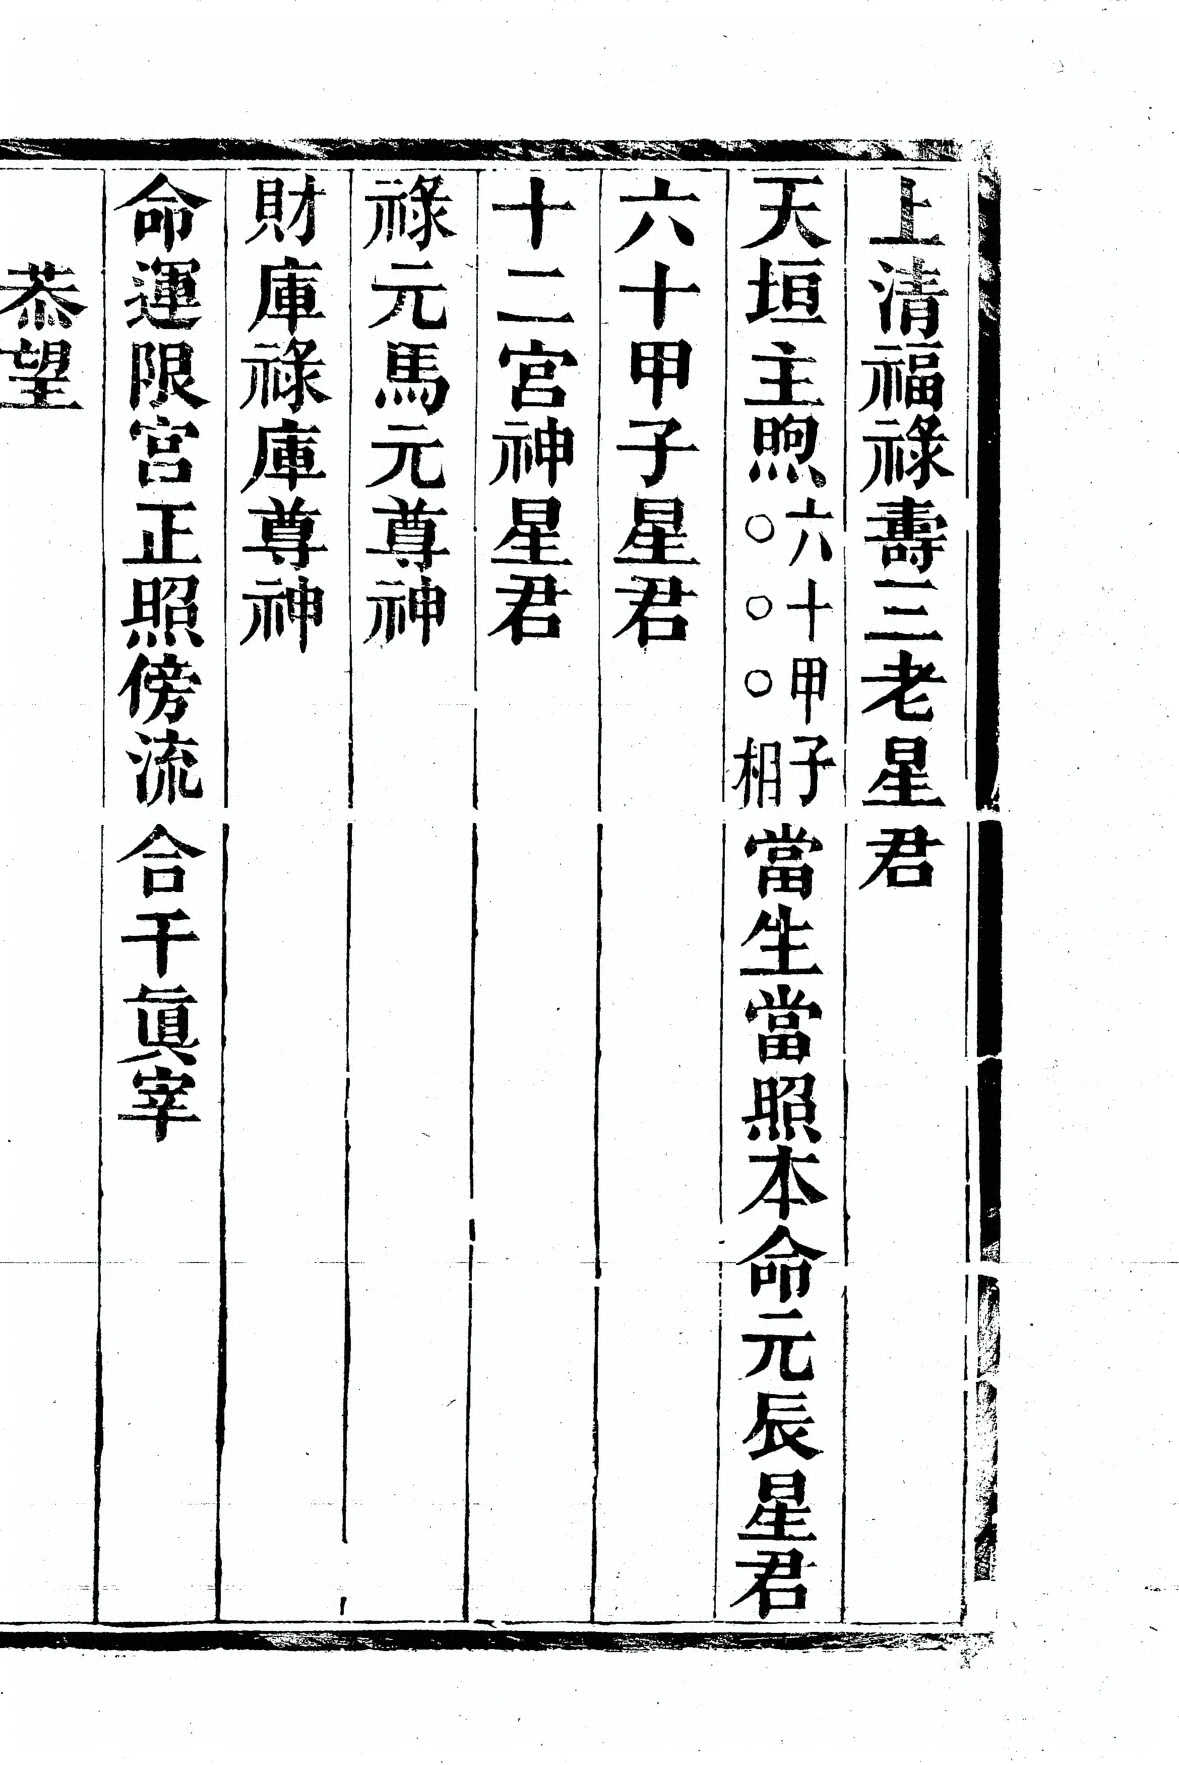 上清福祿壽三老星君
天垣主煦六十甲子〇〇〇相當生當照本命元辰星君
六十甲子星君
十二宮神星君
祿元馬元尊神
財庫祿庫尊神
命運限宮正照傍流合干眞宰
恭望